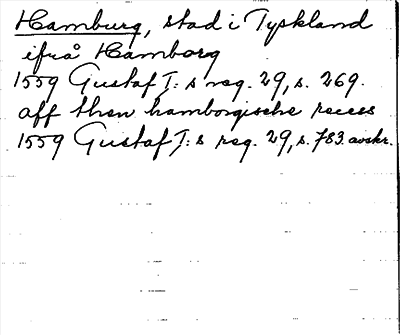 Hamburg, stad i Tyskland
ifrå Hamborg
1559 Gustaf I:s reg. 29, s. 269.
aff then hamborgische recess
1559 Gustaf I:s reg. 29, s. 783. avskr.